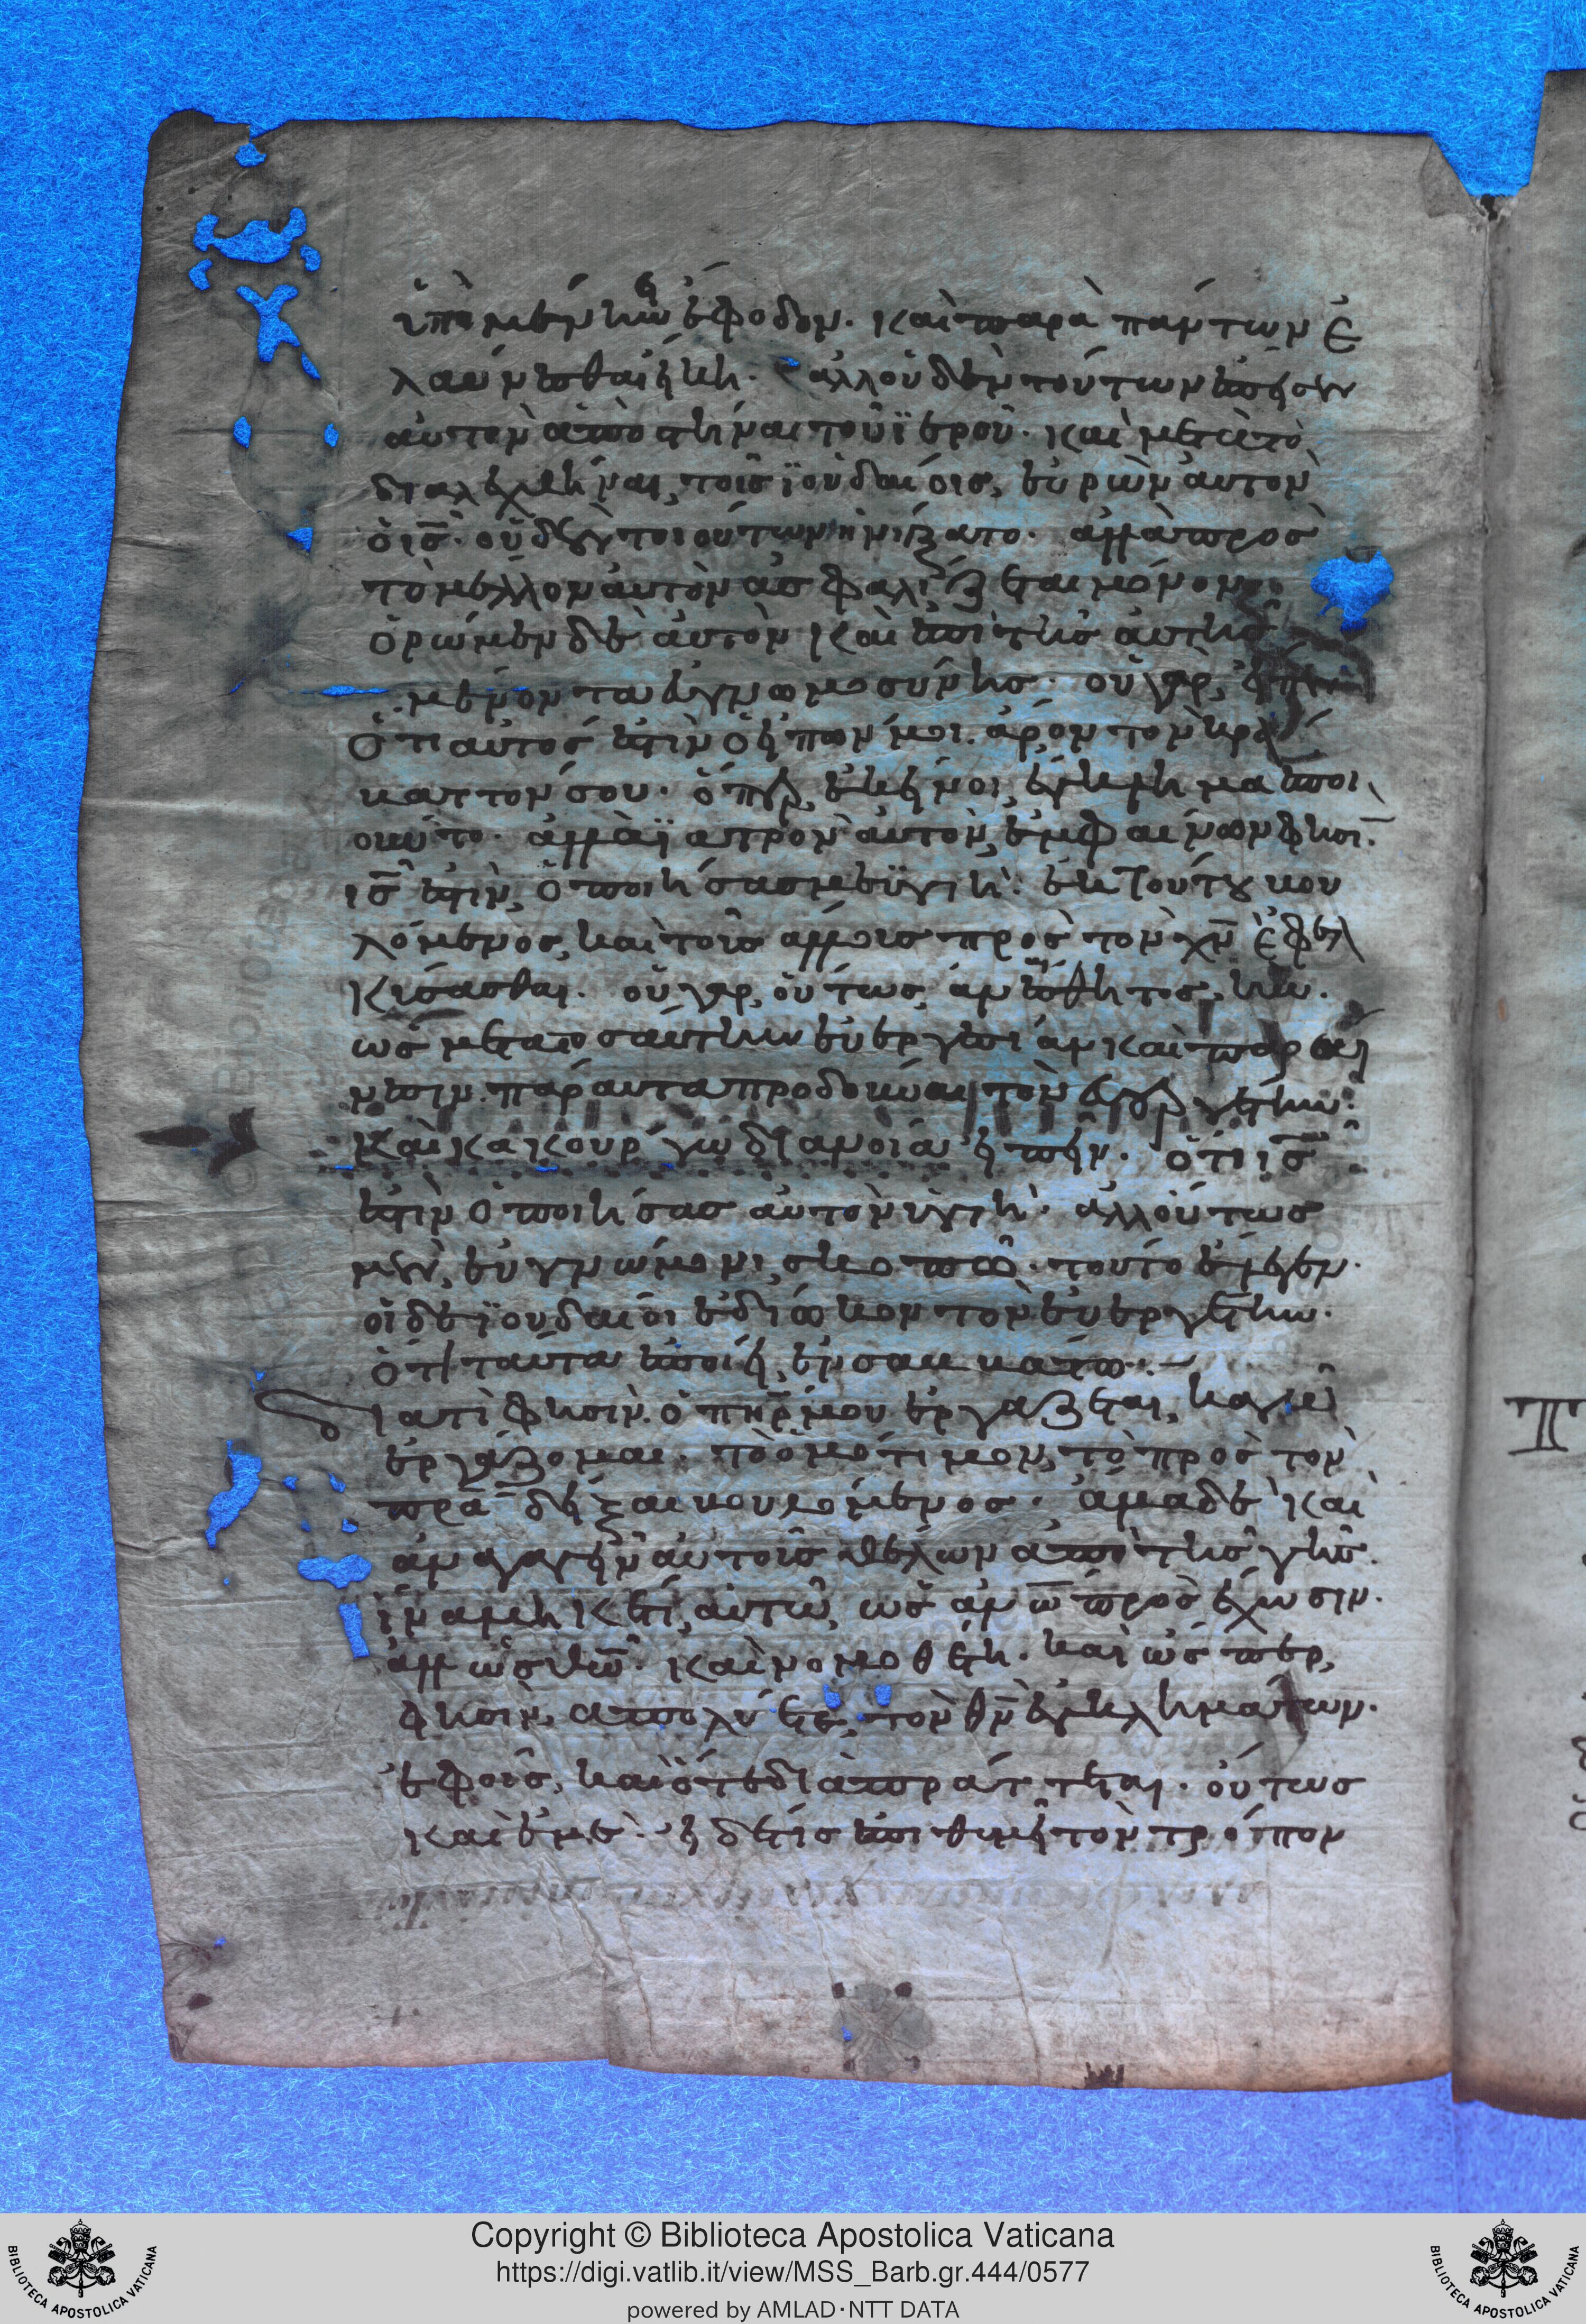 ὑπέμενεν ἔφοδον. καὶ παρὰ πάντων ἐ
λαύνεσθαι ἤκει. ἀλλ οὐδὲν τούτων ἔπεισεν
αὐτὸν ἀποστῆναι τοῦ ἱεροῦ. καὶ μετὰ τὸ
διαλεχθῆναι τοῖς ἰουδαίοις, εὑρὼν αὐτὸν
ὁ ισ. οὐδὲν τοιοῦτον ἠνίξατο. ἀλλὰ πρὸς
τὸ μέλλον αὐτὸν ἀσφαλίζεται μόνον.
ὁρῶμεν δὲ αὐτὸν καὶ ἐπὶ τῆς αὐτῆς
μένοντα εὐγνωμοσύνης. οὐ γὰρ εἶπεν
ὅτι αὐτός ἐστιν ὁ εἰπών μοι. ἆρον τὸν κρά
βαττόν σου. ὅπερ ἐκείνοι ἔγκλημα ἐποι
οῦντο. ἀλλὰ ἰατρὸν αὐτὸν ἐμφαίνων φησί.
ισ ἐστιν, ὁ ποιήσας με ὑγιῆ. ἐκ τούτου βου
λόμενος, καὶ τοῖς ἄλλοις πρὸς τὸν χν ἐφελ
κύσασθαι. οὐ γὰρ οὕτως ἀναίσθητος ἦν.
ὡς μετὰ τοσαύτην εὐεργεσίαν καὶ παραί
νεσιν. πάραυτα προδοῦναι τὸν εὐεργέτην.
καὶ κακούργῳ διανοίᾳ εἰπεῖν. ὅτι ισ
ἐστιν ὁ ποιήσας αὐτὸν ὑγιῆ. ἀλλ οὗτος
μὲν, εὐγνώμονι σκοπῷ τοῦτο ἔλεγεν.
οἱ δὲ ἰουδαῖοι ἐδίωκον τὸν εὐεργέτην.
ὅτι ταῦτα ἐποίει ἐν σαββάτω.
Διατί φησὶν. ὁ πηρ μου ἐργάζεται, κἀγὼ
ἐργάζομαι. τὸ ὁμότιμον, τὸ πρὸς τὸν
πρα δεῖξαι βουλόμενος. ἅμα δὲ καὶ
ἀναγαγεῖν αὐτοὺς θέλων ἀπὸ τῆς γῆς.
ἵνα μηκέτι αὐτῷ, ὡς ἀνω προσέχωσιν.
ἀλλ ὡς θω. καὶ νομοθέτῃ. καὶ ὥσπερ,
φησιν, ἀπολύεται τὸν θν ἐγκλημάτων.
ἐφ οἷς, καὶ ὅτε διαπράττεται. οὕτως
καὶ ἐμὲ. εἰ δέ τις ἐπιθυμεῖ τὸν τρόπον
Copyright © Biblioteca Apostolica Vaticana
https://digi.vatlib.it/view/MSS_Barb.gr.444/0577
powered by AMLAD·NTT DATA
BIBLIOTECA APOSTOLICA VATICANA
BIBLIOTECA APOSTOLICA VATICANA